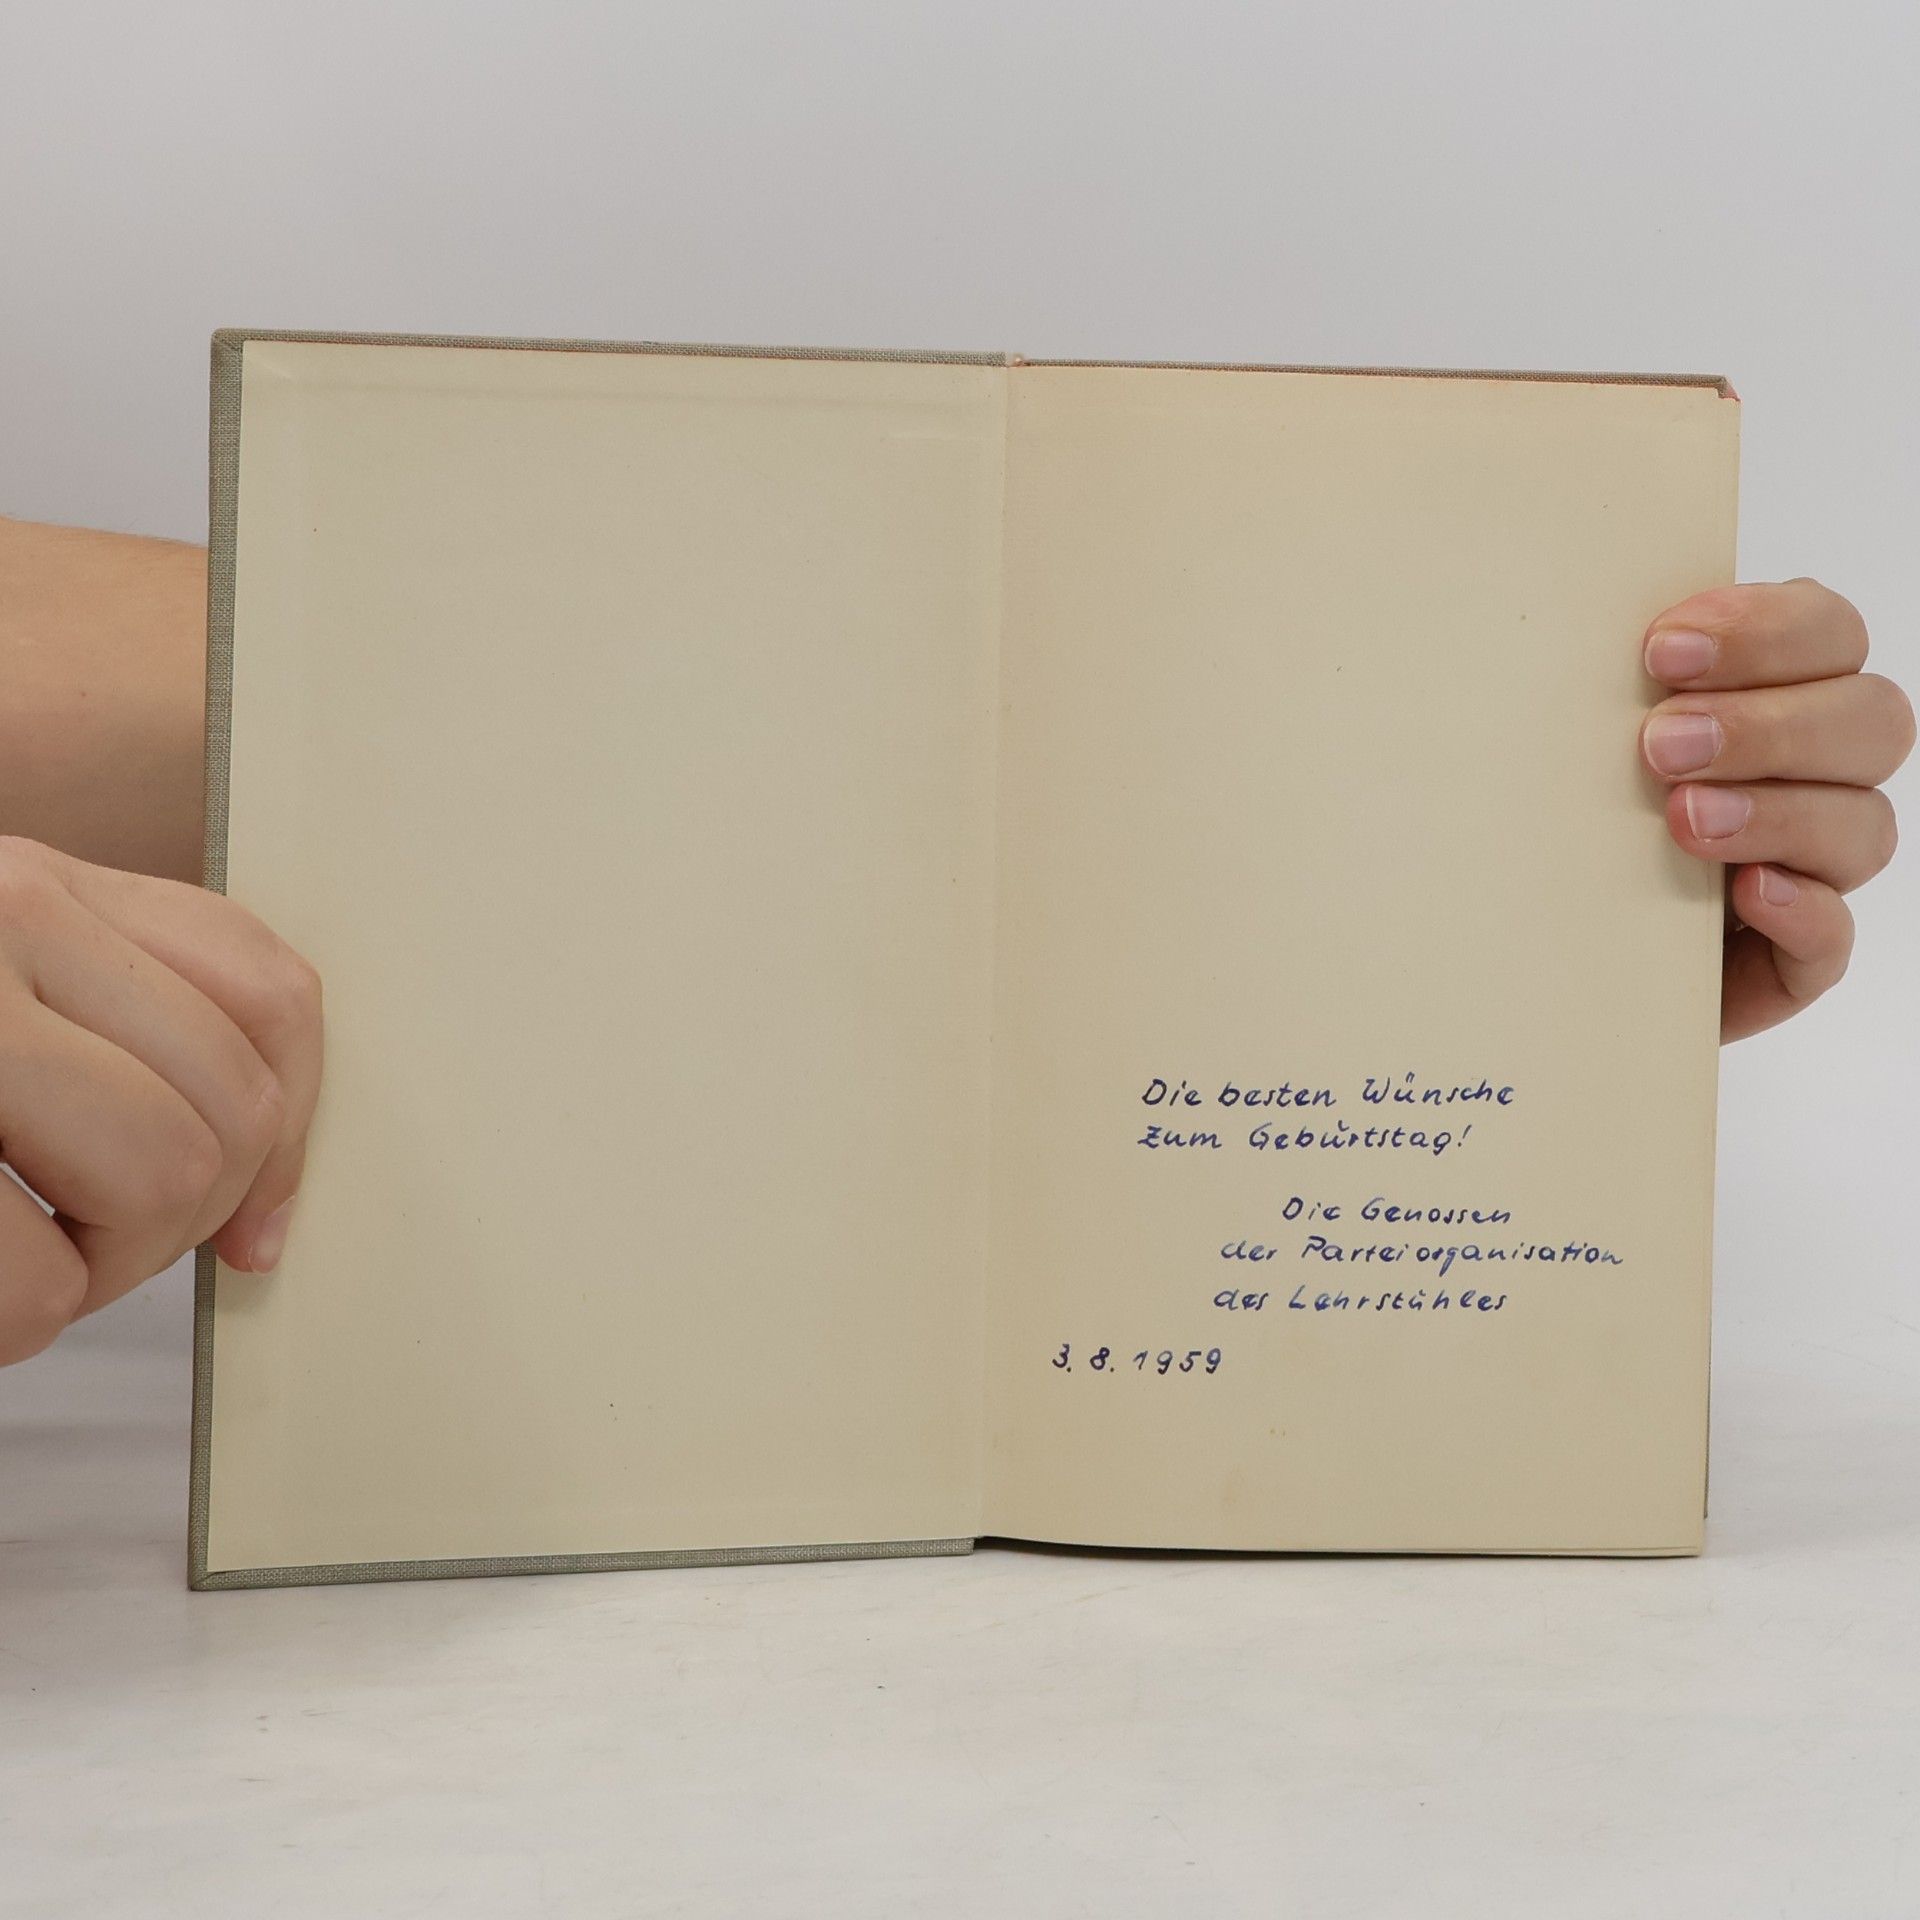 Die besten Wünsche
zum Geburtstag!
Die Genossen
der Parteiorganisation
des Lehrstuhles
3. 8. 1959